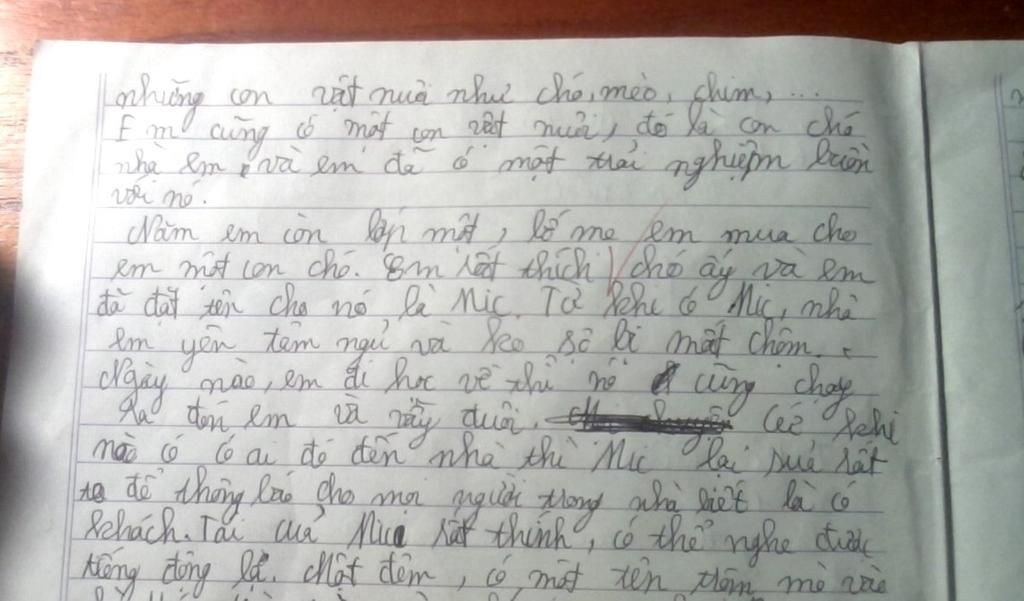 những con vật nuôi như chó, mèo, chim, ...
Em cũng có một con vật nuôi, đó là con chó
nhà em, và em đã có một trải nghiệm buồn
với nó.
Năm em còn lớp một, bố mẹ em mua cho
em một con chó. Em rất thích chó ấy và em
đã đặt tên cho nó là Mic. Từ khi có Mic, nhà
em yên tâm ngủ và ko sợ bị mất chộm.
Ngày nào, em đi học về thì nó cũng chạy
ra đón em và vẫy đuôi. Cứ khi
nào có có ai đó đến nhà thì Mic lại suả rất
to để thông báo cho mọi người trong nhà biết là có
khách. Tai của Mic rất thính, có thể nghe được
tiếng động lạ. Một đêm, có một tên trộm mò vào